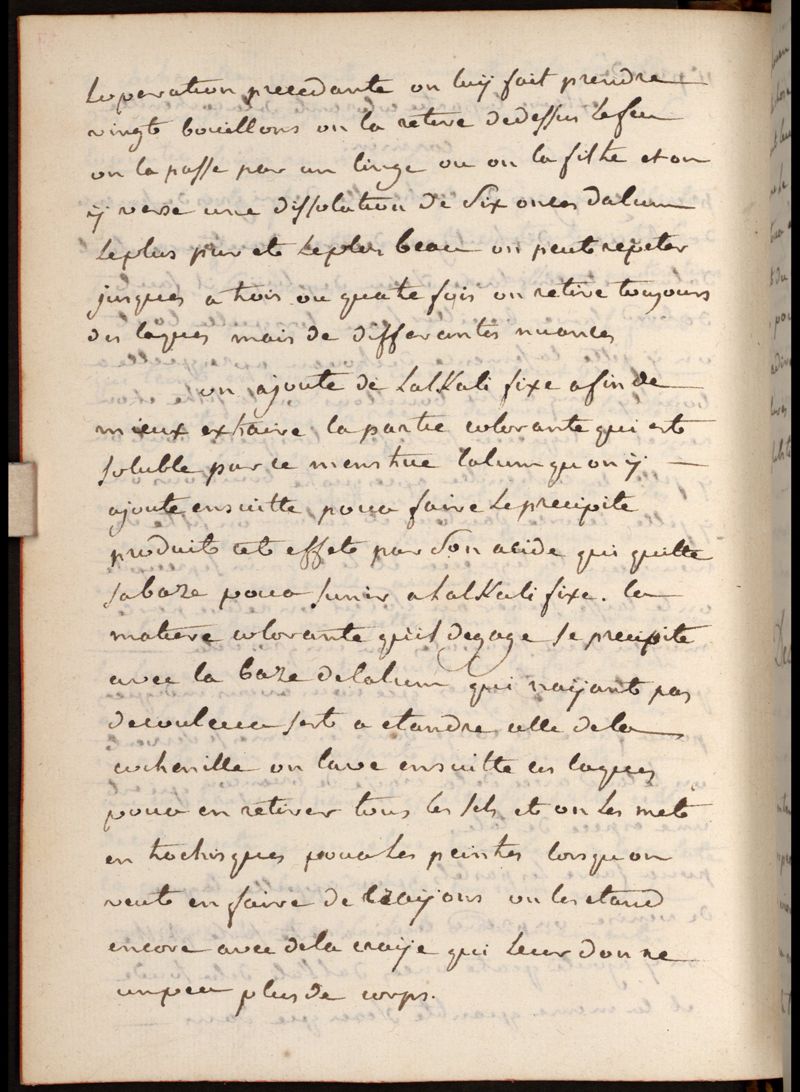 loperation precedante on luy fait prendre
vingt bouillons on la retire dedessus le feu
on la passe par un linge ou on la filtre et on
ÿ verse une dissolution de six onces dalum
le plus pur et le plus beau on peut repeter
jusques a trois ou quatre fois on retire toujours
des laques mais de differantes nuances
on ajoute de lalkali fixe afin de
mieux extraire la partie colorante qui est
soluble par ce menstrue lalum quon ÿ
ajoute ensuitte pour faire le precipite
produit cet effet par son acide qui quitte
sa baze pour sunir a lalkali fixe. la
matiere colorante quil degage se precipite
avec la baze de lalum qui naÿant pas
de couleur sert a etandre celle de la
cochenille on lave ensuitte ces laques
pour en retirer tous les sels et on les met
en trochisques pour les peintres lorsquon
veut en faire de craÿons on les etand
encore avec de la craÿe qui leur donne
un peu plus de corps.